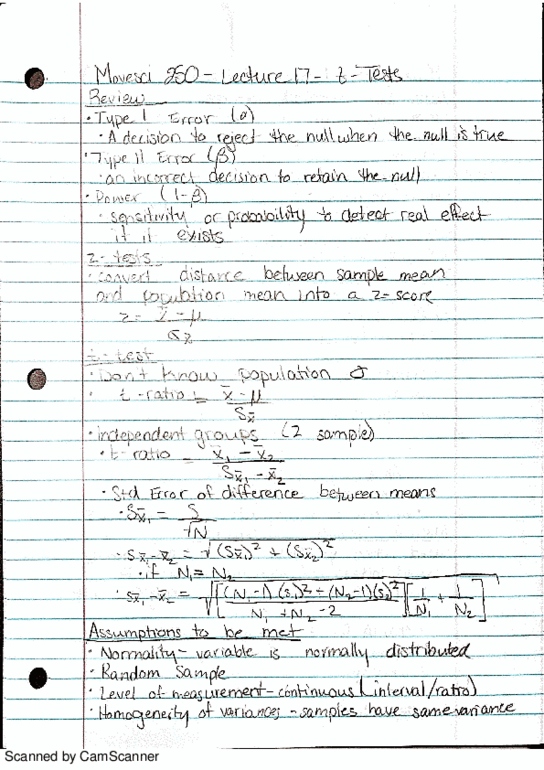 Movesci 250 - Lecture 17 - t - Tests
Review
· Type I Error (α)
· A decision to reject the null when the null is true
· Type II Error (β)
· an incorrect decision to retain the null
· Power (1-β)
· sensitivity or probability to detect real effect
if it exists
z-tests
· convert distance between sample mean
and population mean into a z-score
z = x̄ - μ / σx̄
t-test
· Don't know population σ
· t-ratio = x̄ - μ / Sx̄
· independent groups (2 sample)
· t-ratio = x̄₁ - x̄₂ / Sx̄₁ - x̄₂
· Std Error of difference between means
· Sx̄₁ = S / √N
· Sx̄₁-x̄₂ = √(Sx̄₁)² + (Sx̄₂)²
· if N₁ = N₂
· Sx̄₁-x̄₂ = √[(N₁-1)(s₁)² + (N₂-1)(s₂)² / N₁ + N₂ - 2] [1/N₁ + 1/N₂]
Assumptions to be met
· Normality - variable is normally distributed
· Random Sample
· Level of measurement - continuous (interval/ratio)
· Homogeneity of variances - samples have same variance
Scanned by CamScanner